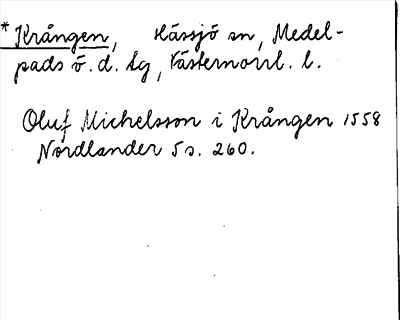 * Krången, Hässjö sn, Medel-
pads ö. d. tg, Västernorrl. l.
Oluf Michelsson i Krången 1558
Nordlander 5 s. 260.